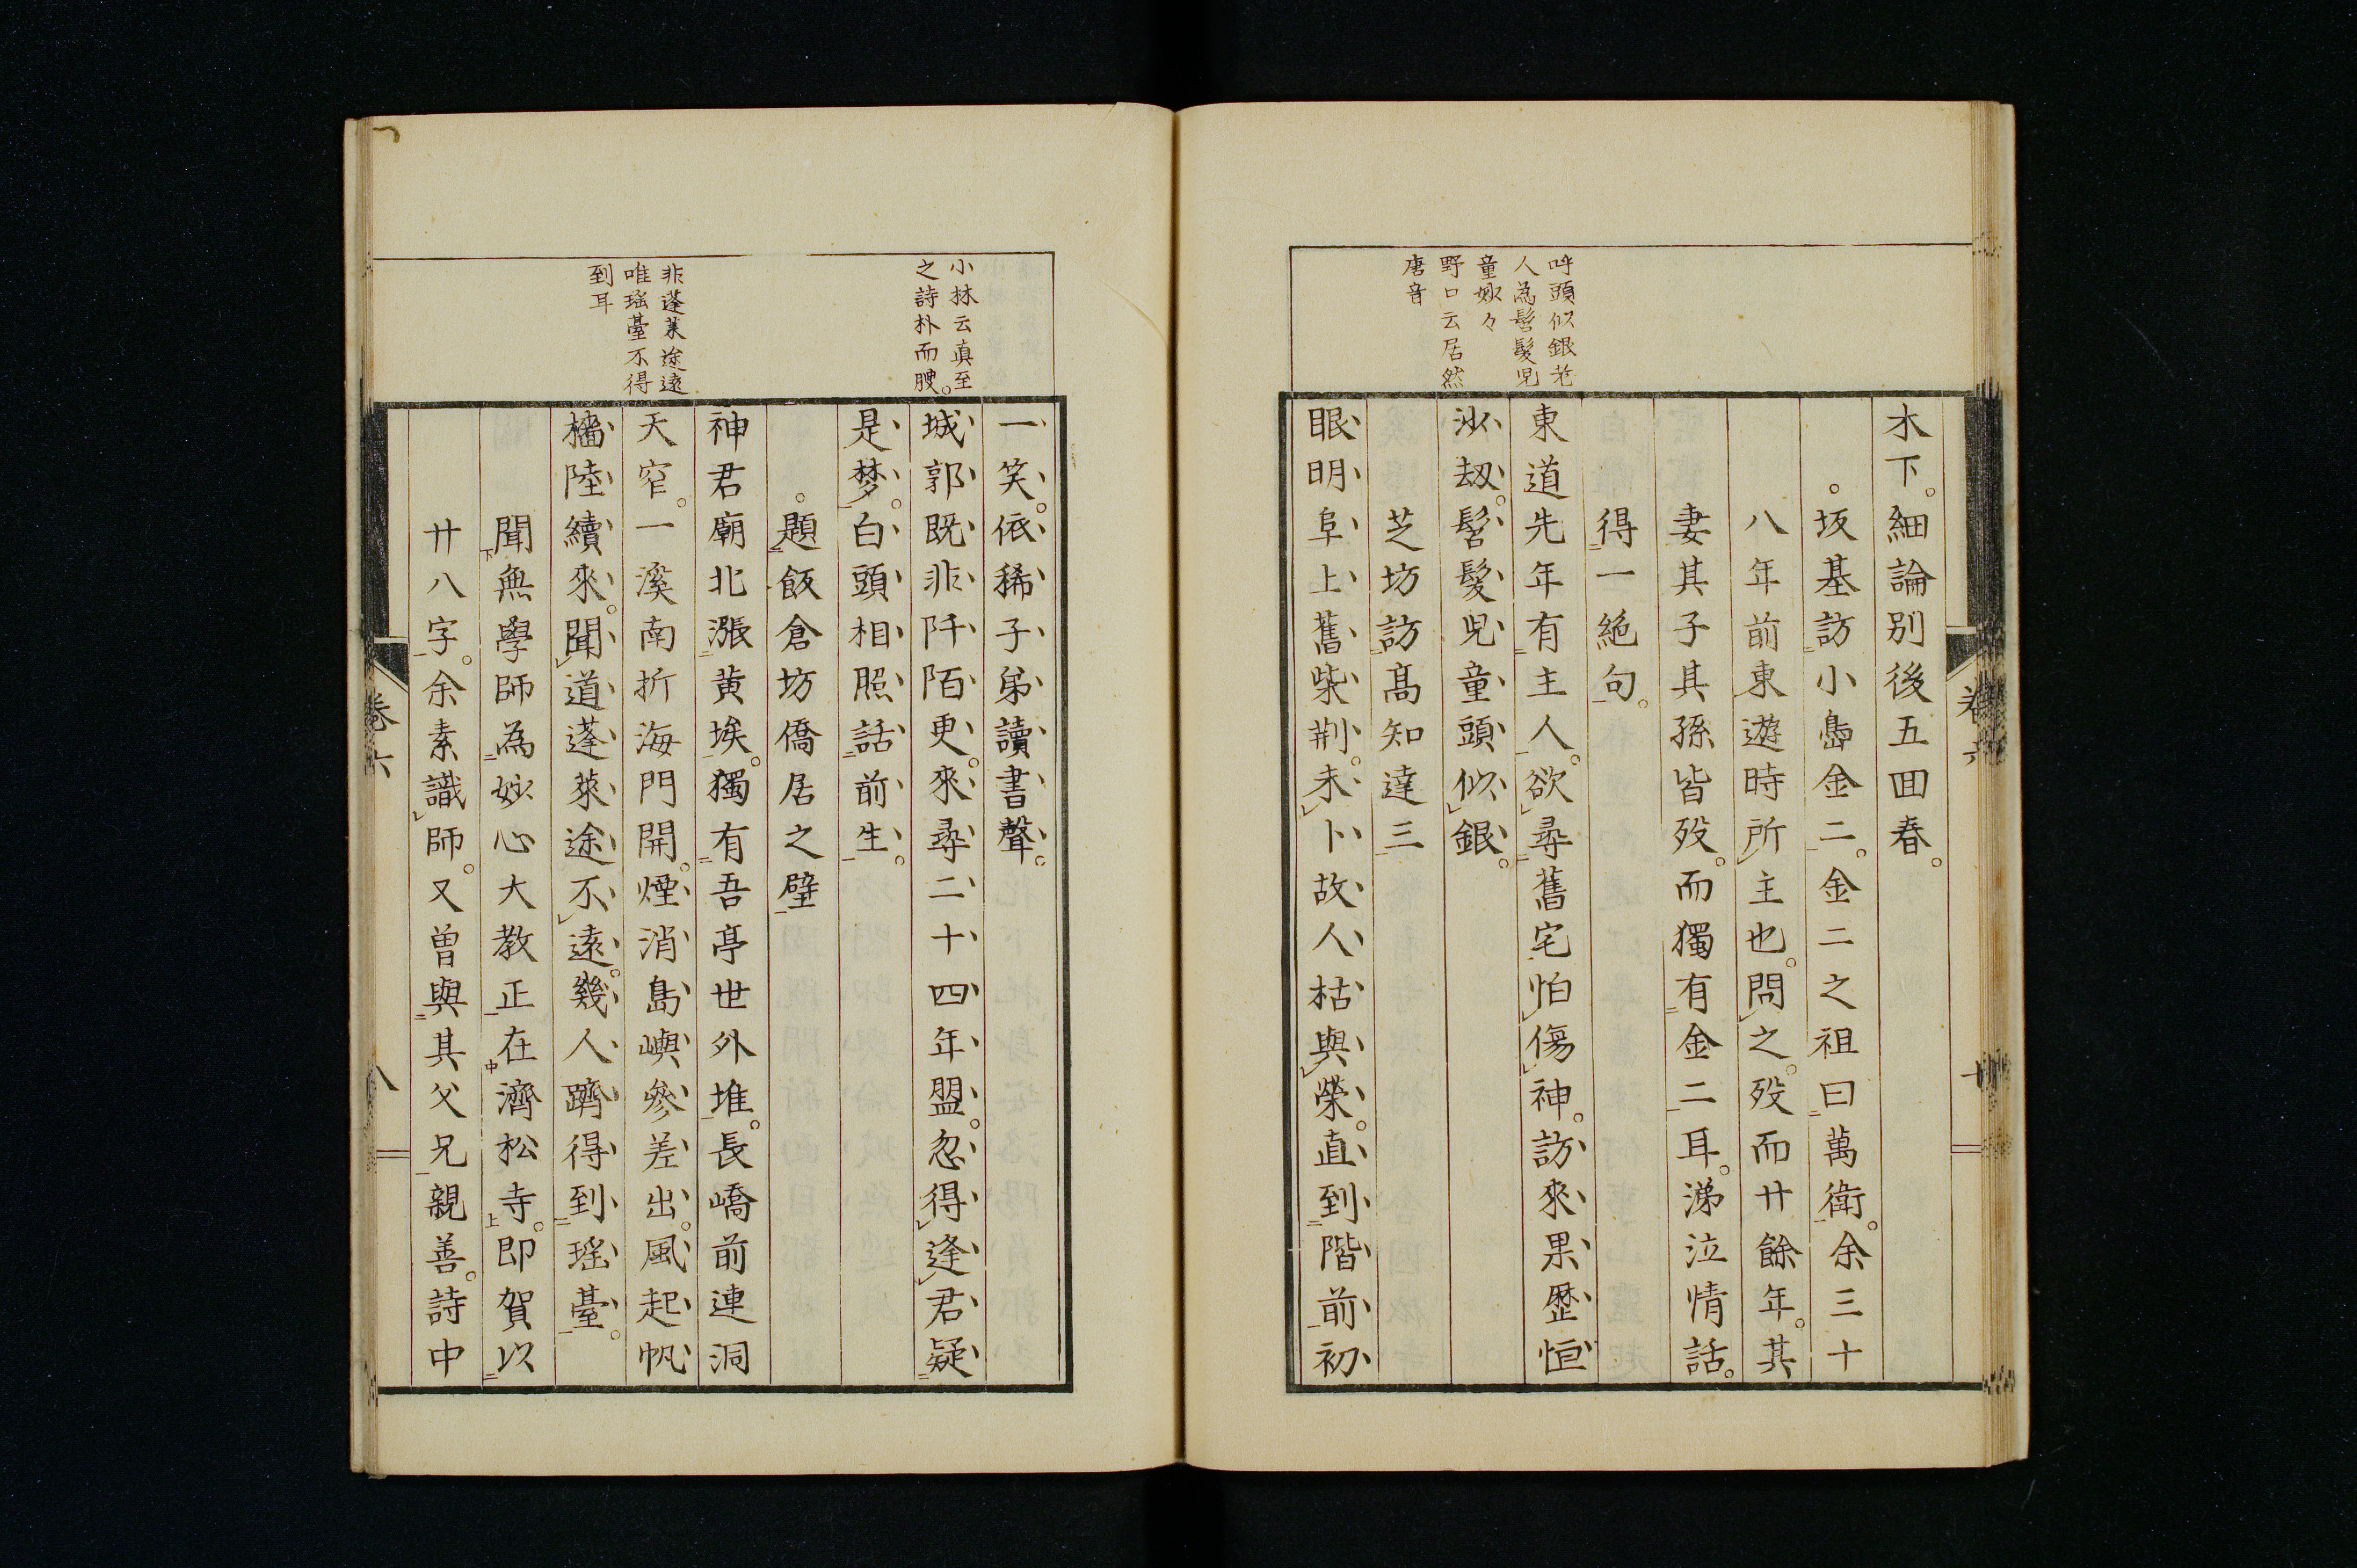 木下。細論別後五回春。
。坂基訪小嶌金二。金二之祖曰萬衛。余三十
八年前東遊時所主也。問之。歿而廿餘年。其
妻其子其孫皆歿。而獨有金二耳。涕泣情話。
得一絶句。
東道先年有主人。欲尋舊宅怕傷神。訪來果歴恒
沙劫。髫髮児童頭似銀。
芝坊訪髙知達三
眼明阜上舊柴荆。未卜故人枯與榮。直到階前初
呼頭似銀老
人為髫髮児
童妙々
野口云居然
唐音
卷六
一笑。依稀子弟讀書聲。
城郭既非阡陌更。來尋二十四年盟。忽得逢君疑
是梦。白頭相照話前生。
。題飯倉坊僑居之壁
神君廟北漲黄埃。獨有吾亭世外堆。長嶠前連洞
天窄。一溪南折海門開。煙消島嶼參差出。風起帆
檣陸續來。聞道蓬萊途不遠。幾人躋得到瑶臺。
聞無學師為妙心大教正在濟松寺。即賀以
廿八字。余素識師。又曽與其父兄親善。詩中
小林云真至
之詩朴而腴。
非蓬莱途遠
唯瑶臺不得
到耳
卷六
八